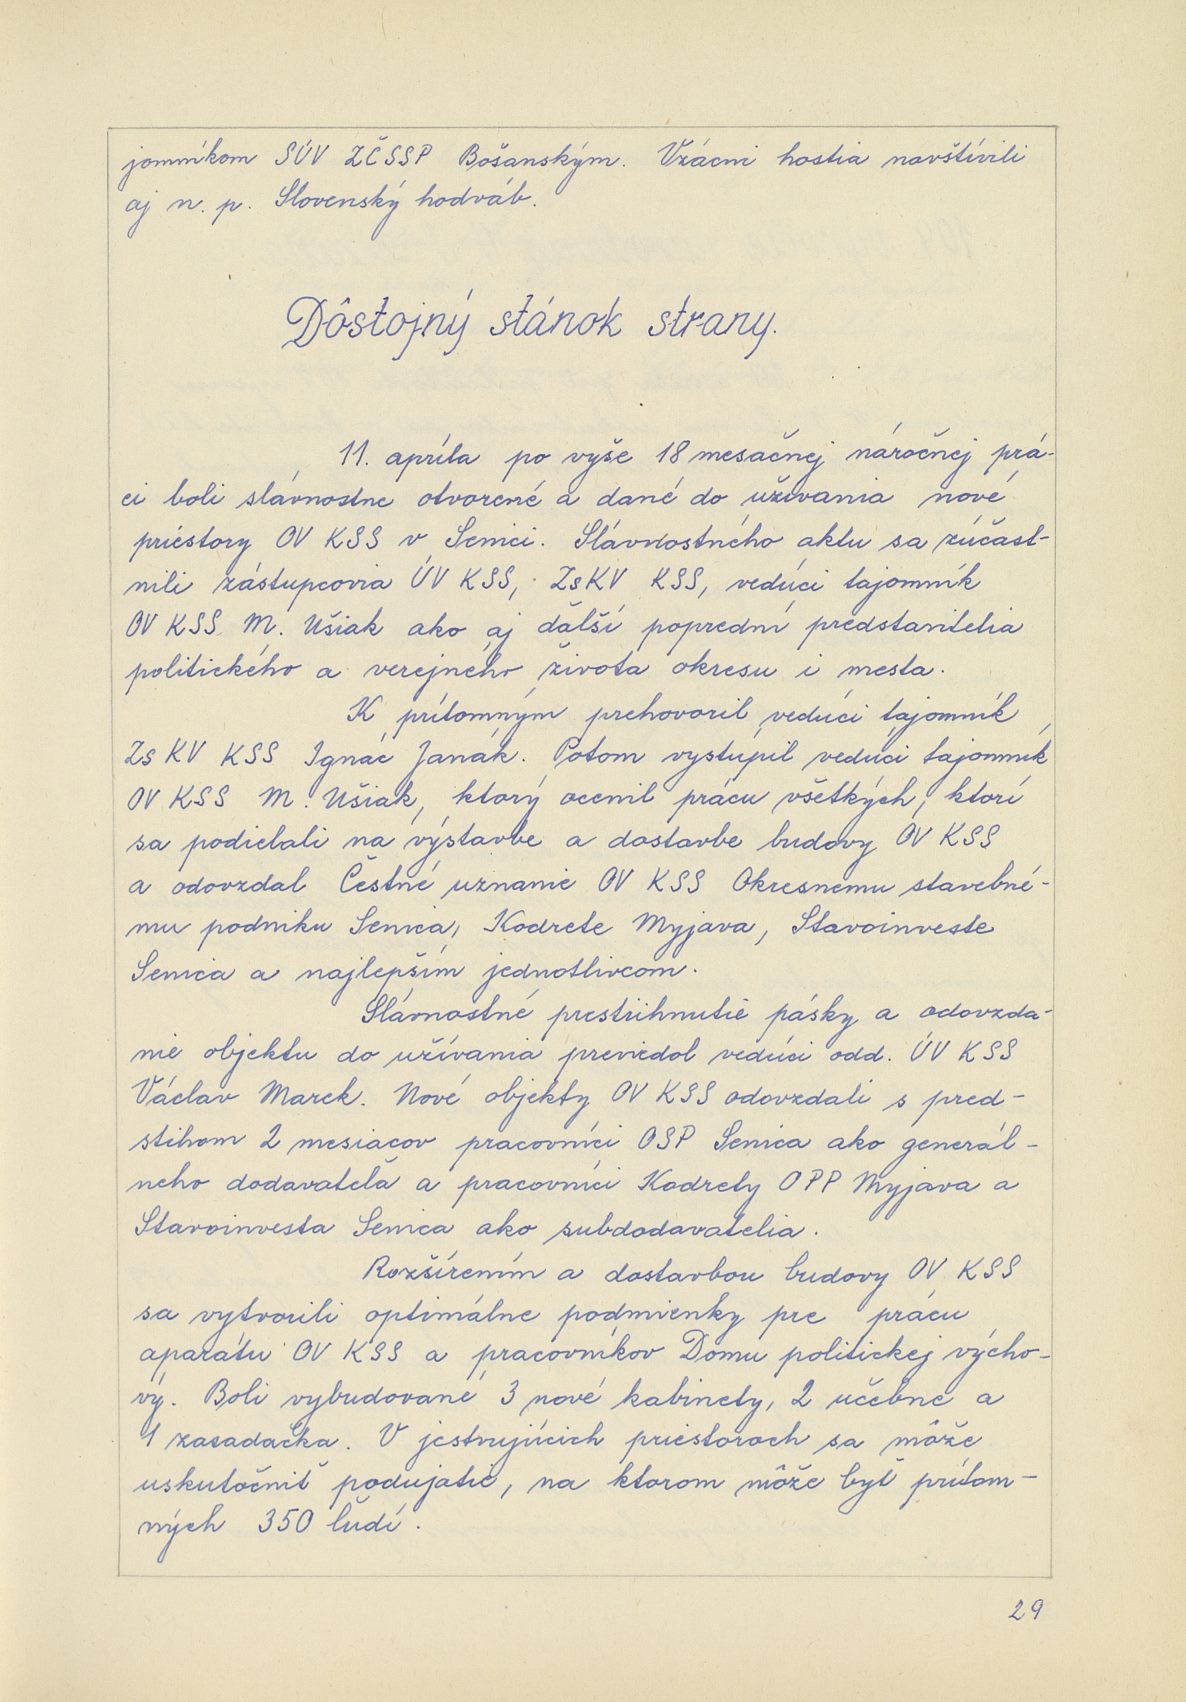 jomníkom SÚV ZČSSP Bošanským. Vzácni hostia navštívili
aj n. p. Slovenský hodváb.
Dôstojný stánok strany.
11. apríla po vyše 18 mesačnej náročnej prá-
ci boli slávnostne otvorené a dané do užívania nové
priestory OV KSS v Senici. Slávnostného aktu sa zúčast-
nili zástupcovia ÚV KSS, ZsKV KSS, vedúci tajomník
OV KSS M. Ušiak ako aj ďalší poprední predstavitelia
politického a verejného života okresu i mesta.
K prítomným prehovoril vedúci tajomník
Zs KV KSS Ignác Janák. Potom vystúpil vedúci tajomník
OV KSS M. Ušiak, ktorý ocenil prácu všetkých, ktorí
sa podielali na výstavbe a dostavbe budovy OV KSS
a odovzdal Čestné uznanie OV KSS Okresnemu stavebné-
mu podniku Senica, Kodrete Myjava, Stavoinveste
Senica a najlepším jednotlivcom.
Slávnostné prestrihnutie pásky a odovzda-
nie objektu do užívania previedol vedúci odd. ÚV KSS
Václav Marek. Nové objekty OV KSS odovzdali s pred-
stihom 2 mesiacov pracovníci OSP Senica ako generál-
neho dodavateľa a pracovníci Kodrety OPP Myjava a
Stavoinvesta Senica ako subdodavatelia.
Rozšírením a dostavbou budovy OV KSS
sa vytvorili optimálne podmienky pre prácu
aparátu OV KSS a pracovníkov Domu politickej výcho-
vý. Boli vybudované 3 nové kabinety, 2 učebne a
1 zasadačka. V jestvujúcich priestoroch sa môže
uskutočniť podujatie, na ktorom môže byť prítom-
ných 350 ľudí.
29